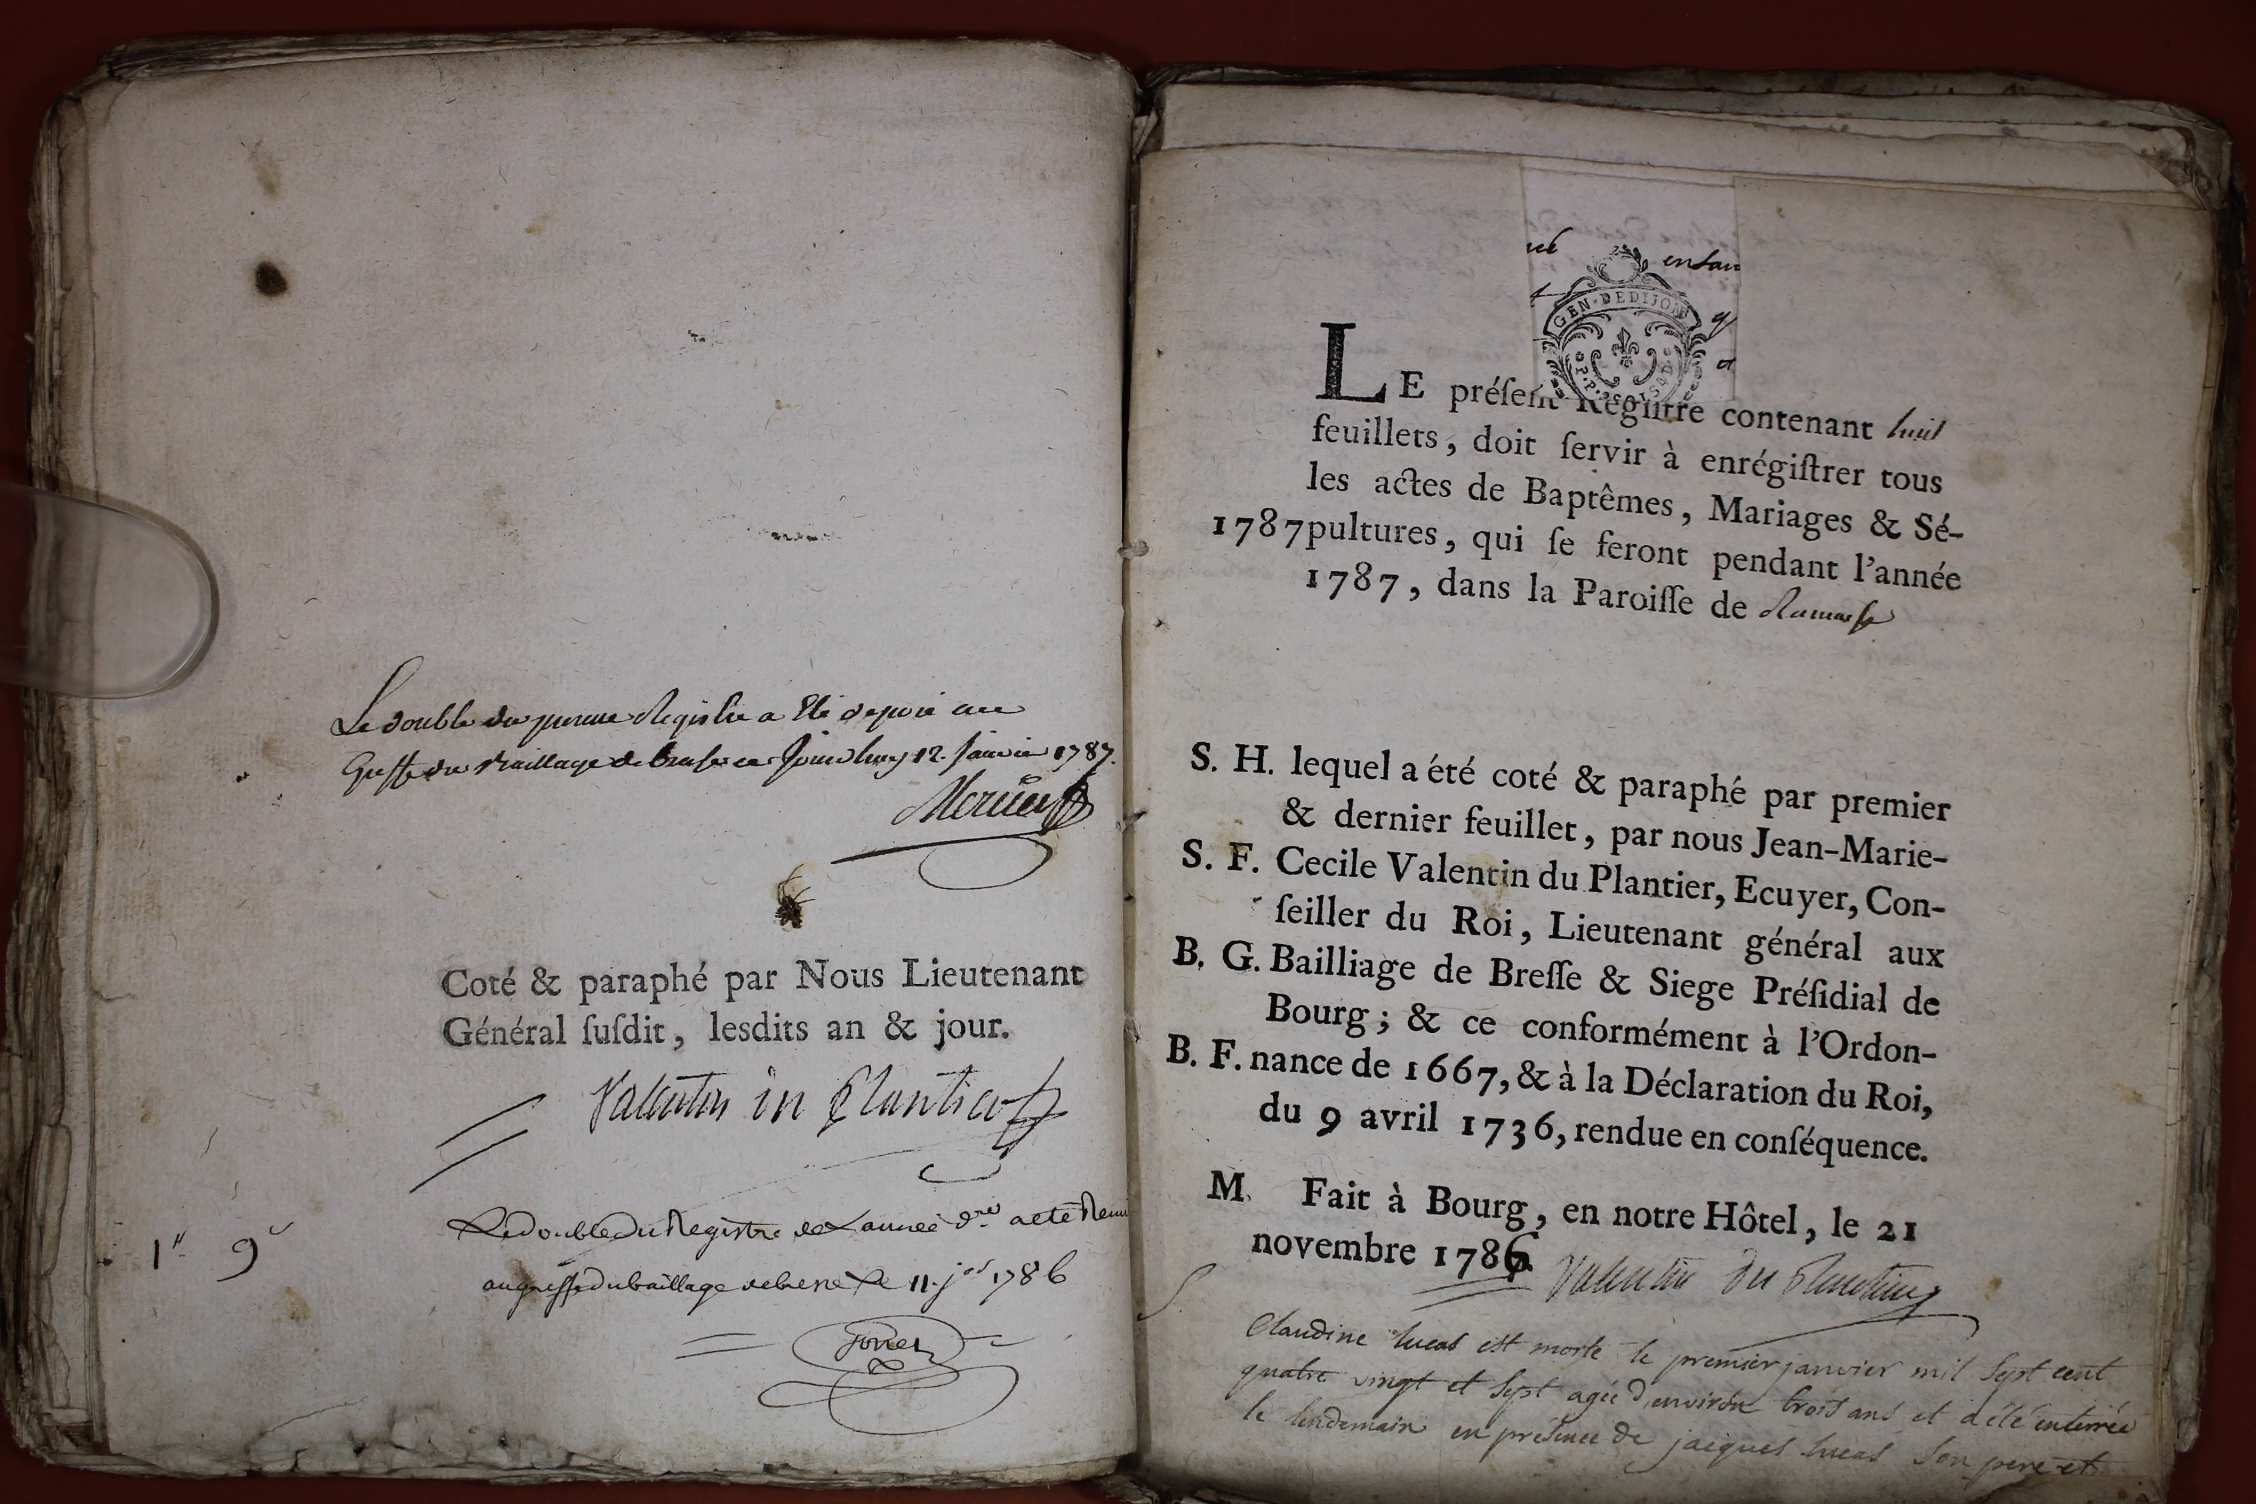 Le double du presente Registre a Eté deposé au
Greffe du Bailliage de Bresse ce Jourdhuy 12. Janvier 1787.
Mercier
Coté & paraphé par Nous Lieutenant
Général ſuſdit, lesdits an & jour.
Valentin du Plantier
Le double du Registre de Lannée dre aeté Remi
au greffe du bailliage de bresse Le 11. jer 1786
1er 9e
en Lan
GEN. DE DIJON
LE préſent Regiſtre contenant huit
feuillets, doit ſervir à enrégiſtrer tous
les actes de Baptêmes, Mariages & Sé-
1787 pultures, qui ſe feront pendant l'année
1787, dans la Paroiſſe de Ramasse
S. H. lequel a été coté & paraphé par premier
& dernier feuillet, par nous Jean-Marie-
S. F. Cecile Valentin du Plantier, Ecuyer, Con-
ſeiller du Roi, Lieutenant général aux
B. G. Bailliage de Breſſe & Siege Préſidial de
Bourg; & ce conformément à l'Ordon-
B. F. nance de 1667, & à la Déclaration du Roi,
du 9 avril 1736, rendue en conſéquence.
M. Fait à Bourg, en notre Hôtel, le 21
novembre 1786
Valentin Du Plantier
Claudine lucas est morte le premier janvier mil Sept cent
quatre vingt et Sept agée d'environ trois ans et a été enterrée
le lendemain en présence de jacques lucas Son pere et